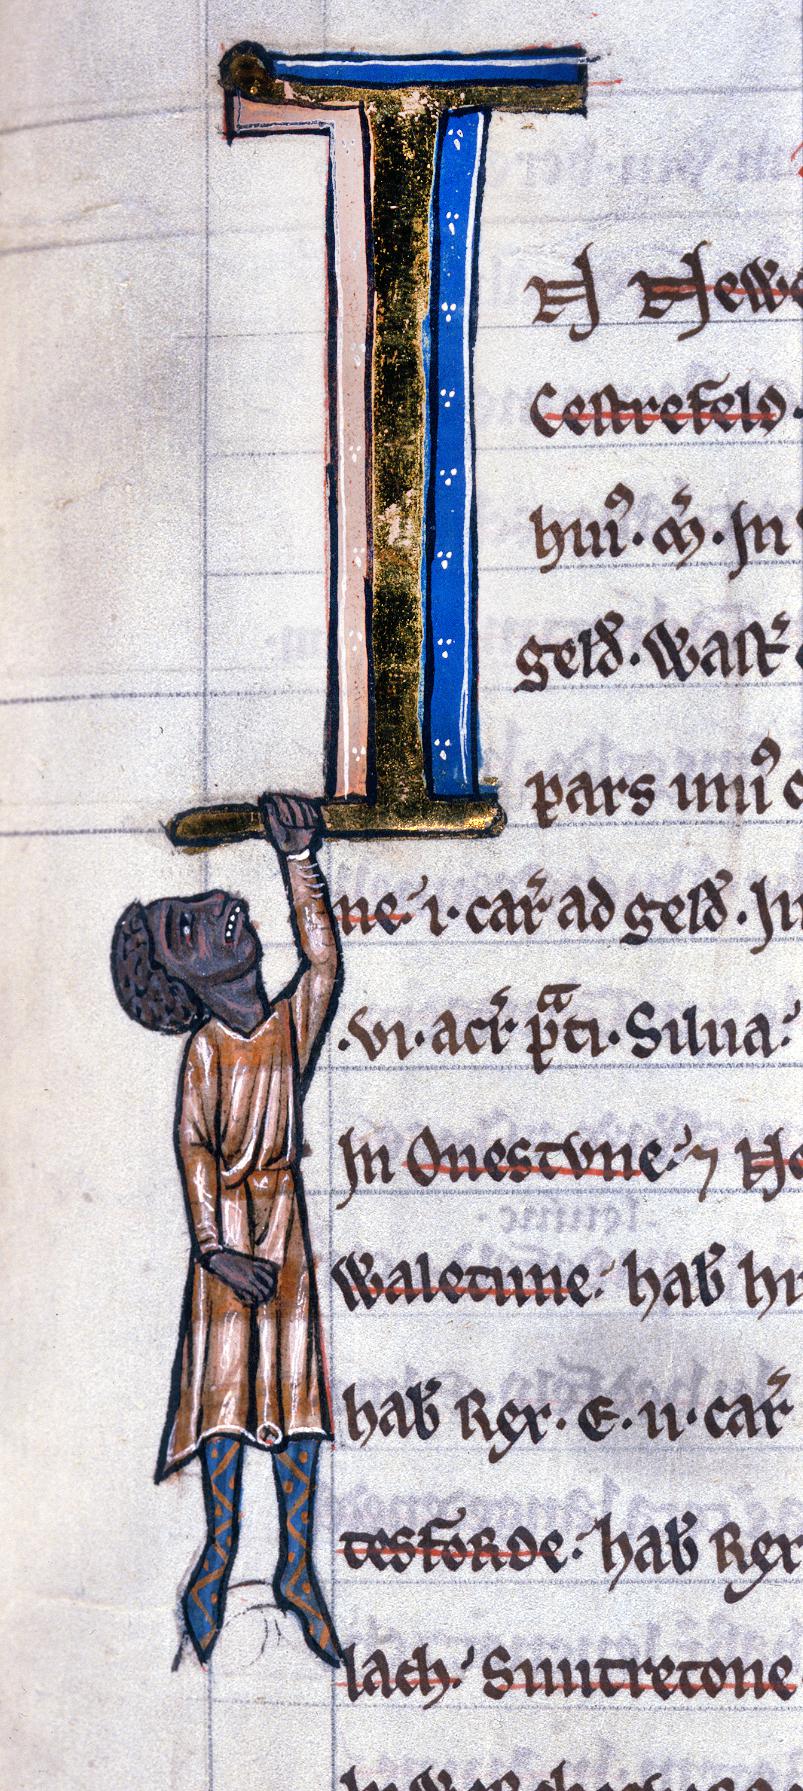 IN Newe
Cestrefeld.
hui᷒. m̃. In
geld̃. Wast̃
pars uni᷒
ne. i. car̃ ad geld̃. In
.vi. acr̃ p̃ti. Silua.
In Onestune. ⁊ No
Waletune. hab̃ hr
hab̃ Rex. E. ii. car̃
tesforde. hab̃ Rex
lach. Snitretone